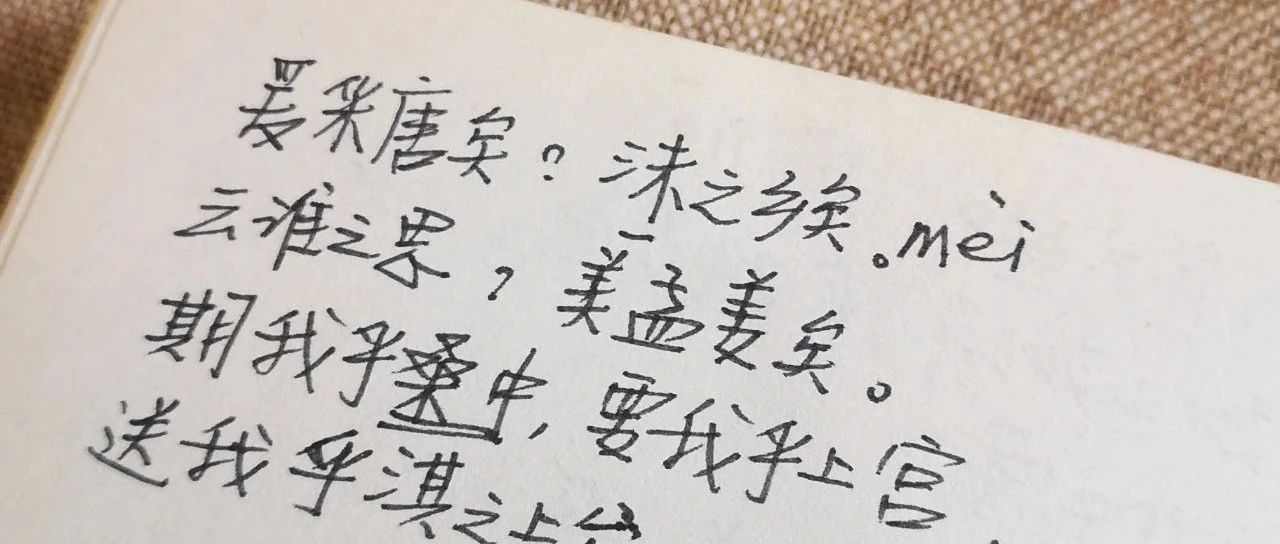 爰采唐矣？沬之乡矣。mèi
云谁之思？美孟姜矣。
期我乎桑中，要我乎上宫
送我乎淇之上矣